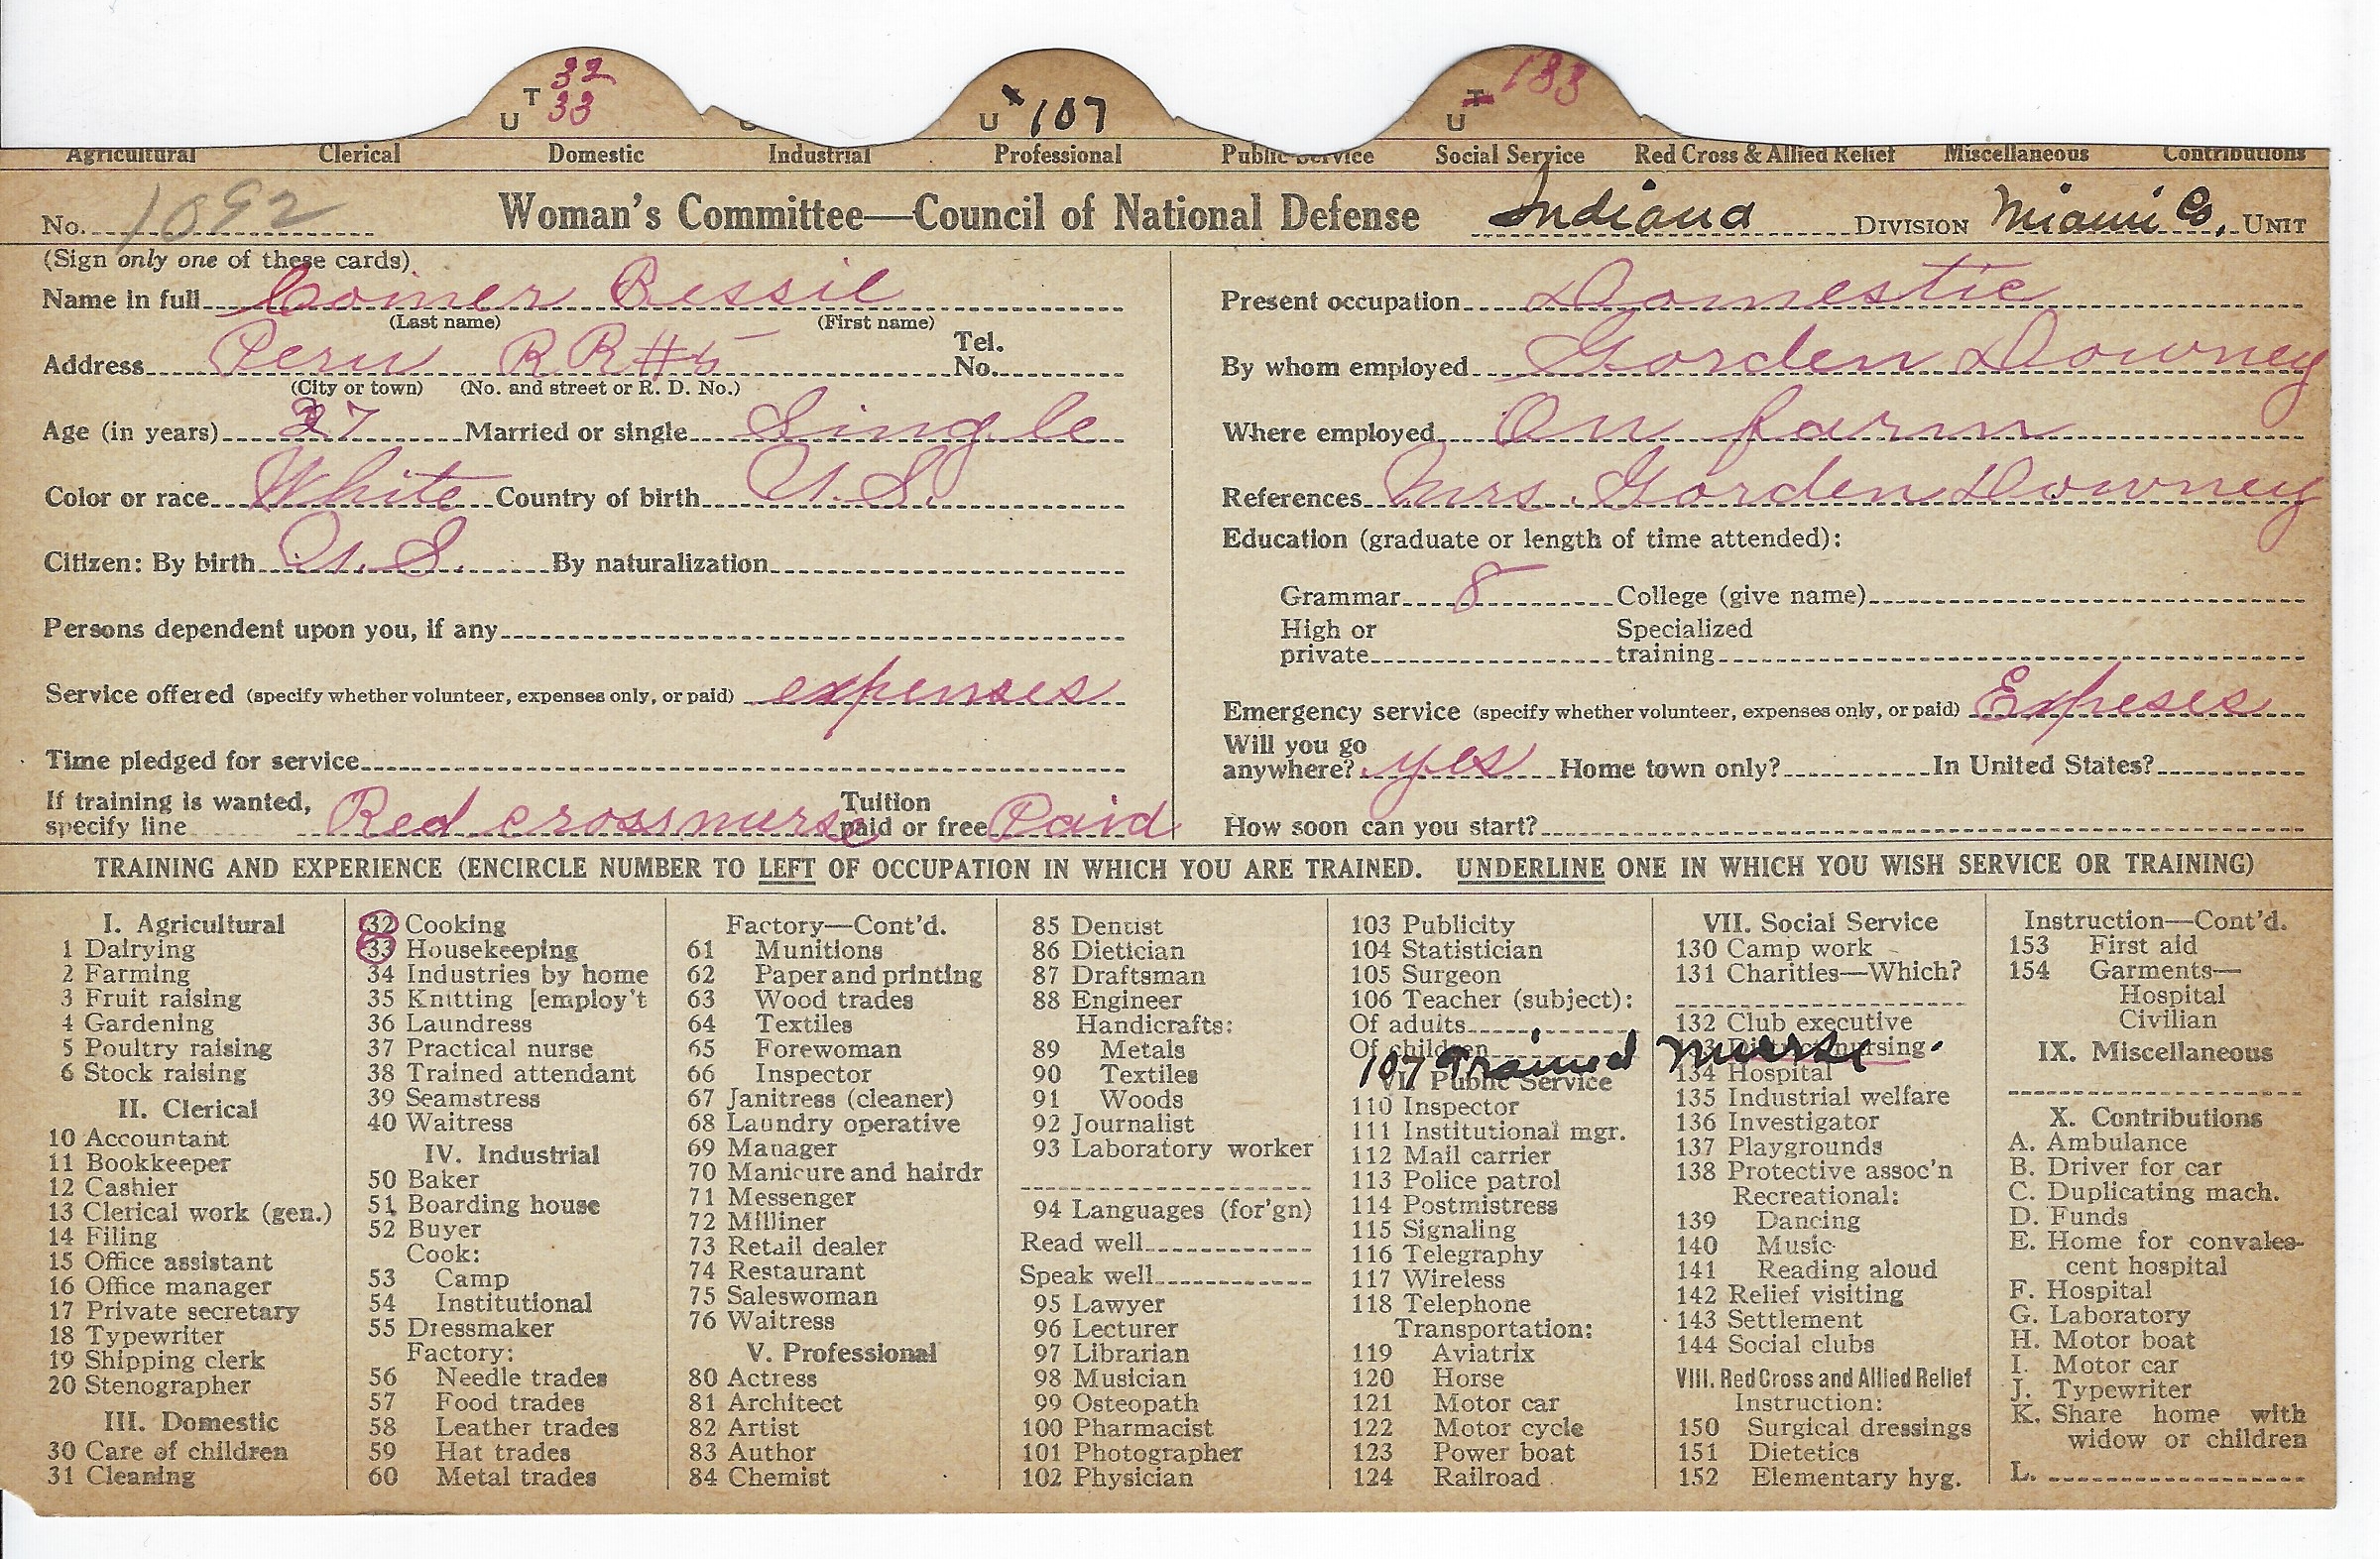 32
T 33
U
107
U
133
T
U
Agricultural Clerical Domestic Industrial Professional Public Service Social Service Red Cross & Allied Relief Miscellaneous Contributions
No. 1092 Woman's Committee—Council of National Defense Indiana DIVISION Miami Co. UNIT
(Sign only one of these cards)
Name in full Comer Bessie
(Last name) (First name)
Address Peru RR#5 Tel. No.
(City or town) (No. and street or R. D. No.)
Age (in years) 27 Married or single Single
Color or race White Country of birth U.S.
Citizen: By birth U.S. By naturalization
Persons dependent upon you, if any
Service offered (specify whether volunteer, expenses only, or paid) expenses
Time pledged for service
If training is wanted, specify line Red cross nurse Tuition paid or free Paid
Present occupation Domestic
By whom employed Gorden Downey
Where employed On farm
References Mrs. Gorden Downey
Education (graduate or length of time attended):
Grammar 8 College (give name)
High or private Specialized training
Emergency service (specify whether volunteer, expenses only, or paid) Expeses
Will you go anywhere? yes Home town only? In United States?
How soon can you start?
TRAINING AND EXPERIENCE (ENCIRCLE NUMBER TO LEFT OF OCCUPATION IN WHICH YOU ARE TRAINED. UNDERLINE ONE IN WHICH YOU WISH SERVICE OR TRAINING)
I. Agricultural
1 Dairying
2 Farming
3 Fruit raising
4 Gardening
5 Poultry raising
6 Stock raising
II. Clerical
10 Accountant
11 Bookkeeper
12 Cashier
13 Clerical work (gen.)
14 Filing
15 Office assistant
16 Office manager
17 Private secretary
18 Typewriter
19 Shipping clerk
20 Stenographer
III. Domestic
30 Care of children
31 Cleaning
32 Cooking
33 Housekeeping
34 Industries by home
35 Knitting [employ't
36 Laundress
37 Practical nurse
38 Trained attendant
39 Seamstress
40 Waitress
IV. Industrial
50 Baker
51 Boarding house
52 Buyer
Cook:
53 Camp
54 Institutional
55 Dressmaker
Factory:
56 Needle trades
57 Food trades
58 Leather trades
59 Hat trades
60 Metal trades
Factory—Cont'd.
61 Munitions
62 Paper and printing
63 Wood trades
64 Textiles
65 Forewoman
66 Inspector
67 Janitress (cleaner)
68 Laundry operative
69 Manager
70 Manicure and hairdr
71 Messenger
72 Milliner
73 Retail dealer
74 Restaurant
75 Saleswoman
76 Waitress
V. Professional
80 Actress
81 Architect
82 Artist
83 Author
84 Chemist
85 Dentist
86 Dietician
87 Draftsman
88 Engineer
Handicrafts:
89 Metals
90 Textiles
91 Woods
92 Journalist
93 Laboratory worker
94 Languages (for'gn)
Read well
Speak well
95 Lawyer
96 Lecturer
97 Librarian
98 Musician
99 Osteopath
100 Pharmacist
101 Photographer
102 Physician
103 Publicity
104 Statistician
105 Surgeon
106 Teacher (subject):
Of adults
Of children
107 Trained nurse
VI. Public Service
110 Inspector
111 Institutional mgr.
112 Mail carrier
113 Police patrol
114 Postmistress
115 Signaling
116 Telegraphy
117 Wireless
118 Telephone
Transportation:
119 Aviatrix
120 Horse
121 Motor car
122 Motor cycle
123 Power boat
124 Railroad
VII. Social Service
130 Camp work
131 Charities—Which?
132 Club executive
133 District nursing
134 Hospital
135 Industrial welfare
136 Investigator
137 Playgrounds
138 Protective assoc'n
Recreational:
139 Dancing
140 Music
141 Reading aloud
142 Relief visiting
143 Settlement
144 Social clubs
VIII. Red Cross and Allied Relief
Instruction:
150 Surgical dressings
151 Dietetics
152 Elementary hyg.
Instruction—Cont'd.
153 First aid
154 Garments—
Hospital
Civilian
IX. Miscellaneous
X. Contributions
A. Ambulance
B. Driver for car
C. Duplicating mach.
D. Funds
E. Home for convales-
cent hospital
F. Hospital
G. Laboratory
H. Motor boat
I. Motor car
J. Typewriter
K. Share home with
widow or children
L.